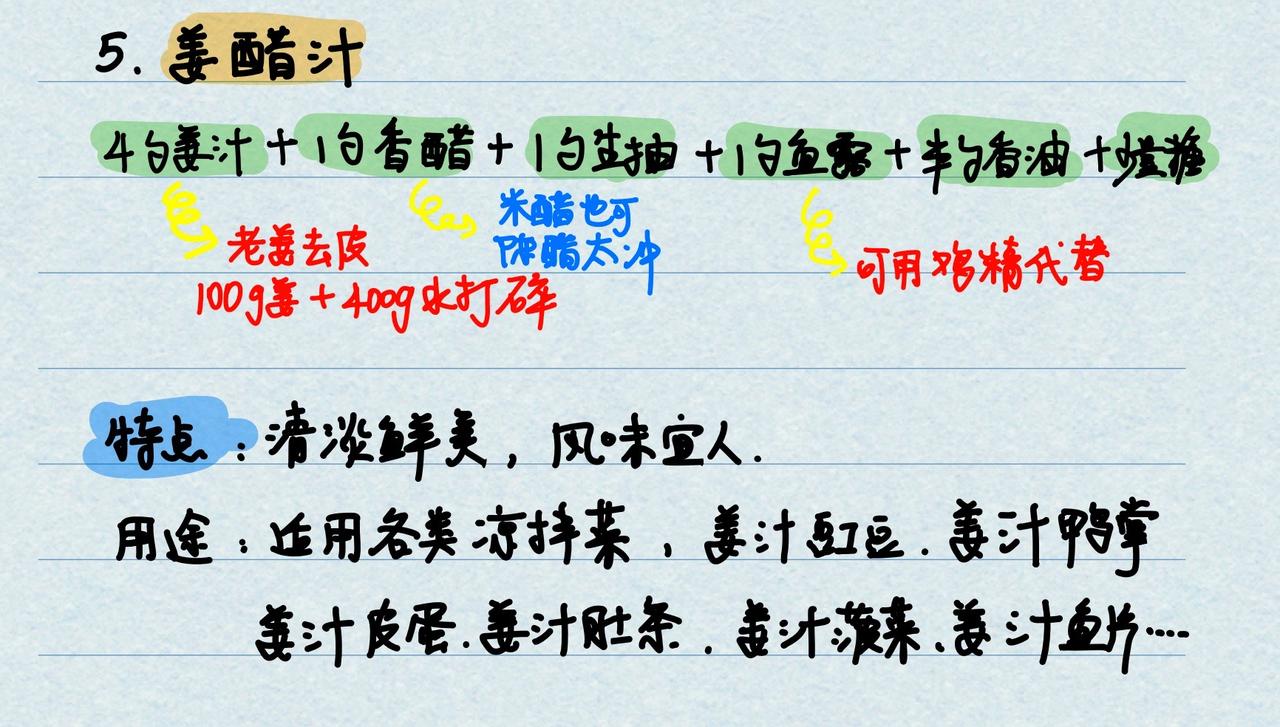 5. 姜醋汁
4勺姜汁+1勺香醋+1勺生抽+1勺鱼露+半勺香油+少盐糖
米醋也可
陈醋太冲
老姜去皮
100g姜+400g水打碎
可用鸡精代替
特点：清淡鲜美，风味宜人.
用途：适用各类凉拌菜，姜汁豇豆.姜汁鸭掌
姜汁皮蛋.姜汁肚条.姜汁菠菜.姜汁鱼片....